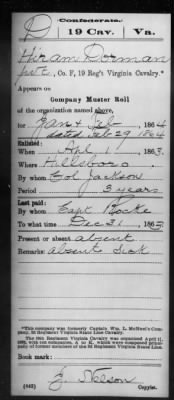 Confederate.
D 19 Cav. Va.
Hiram Dorman
Pvt., Co. F, 19 Reg't Virginia Cavalry.*
Appears on
Company Muster Roll
of the organization named above,
for Jan & Feb 1864
dated Feb 29 1864
Enlisted:
When Apl 1, 1863.
Where Hillsboro
By whom Col Jackson
Period 3 years
Last paid:
By whom Capt
To what time Dec 31, 1863.
Present or absent absent
Remarks: absent sick
*This company was formerly Captain Wm. L. McNeel's Company, Virginia State Line Cavalry.
The 19th Regiment Virginia Cavalry was organized April 11, 1863, with ten companies, A to K, which were composed principally of former members of the Regiment Virginia State Line.
Book mark:
(642) Nelson
Copyist.